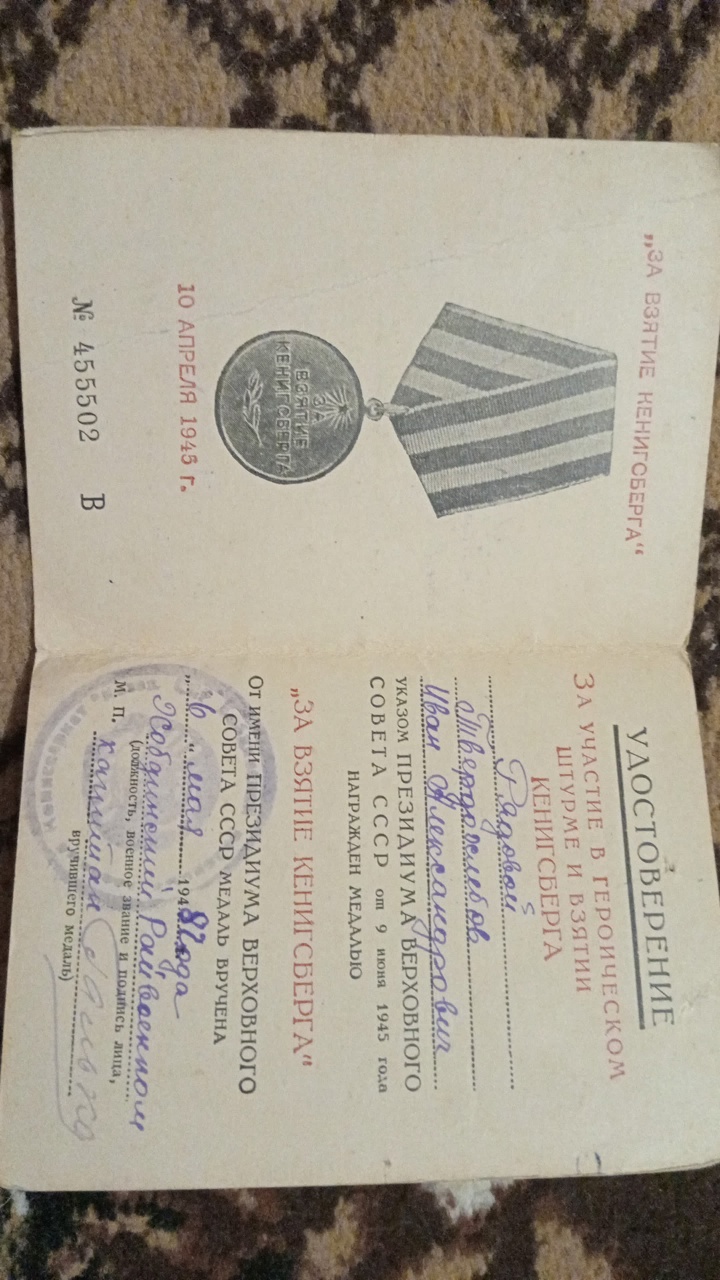 „ЗА ВЗЯТИЕ КЕНИГСБЕРГА“
ЗА
ВЗЯТИЕ
КЕНИГСБЕРГА
10 АПРЕЛЯ 1945 г.
№ 455502 В
УДОСТОВЕРЕНИЕ
ЗА УЧАСТИЕ В ГЕРОИЧЕСКОМ
ШТУРМЕ И ВЗЯТИИ
КЕНИГСБЕРГА
Рядовой
Твердохлебов
Иван Александрович
УКАЗОМ ПРЕЗИДИУМА ВЕРХОВНОГО
СОВЕТА СССР от 9 июня 1945 года
НАГРАЖДЕН МЕДАЛЬЮ
„ЗА ВЗЯТИЕ КЕНИГСБЕРГА“
От имени ПРЕЗИДИУМА ВЕРХОВНОГО
СОВЕТА СССР МЕДАЛЬ ВРУЧЕНА
„6“ мая 1948 года
Райвоенком
(должность, военное звание и подпись лица,
М. П. капитан
вручившего медаль)